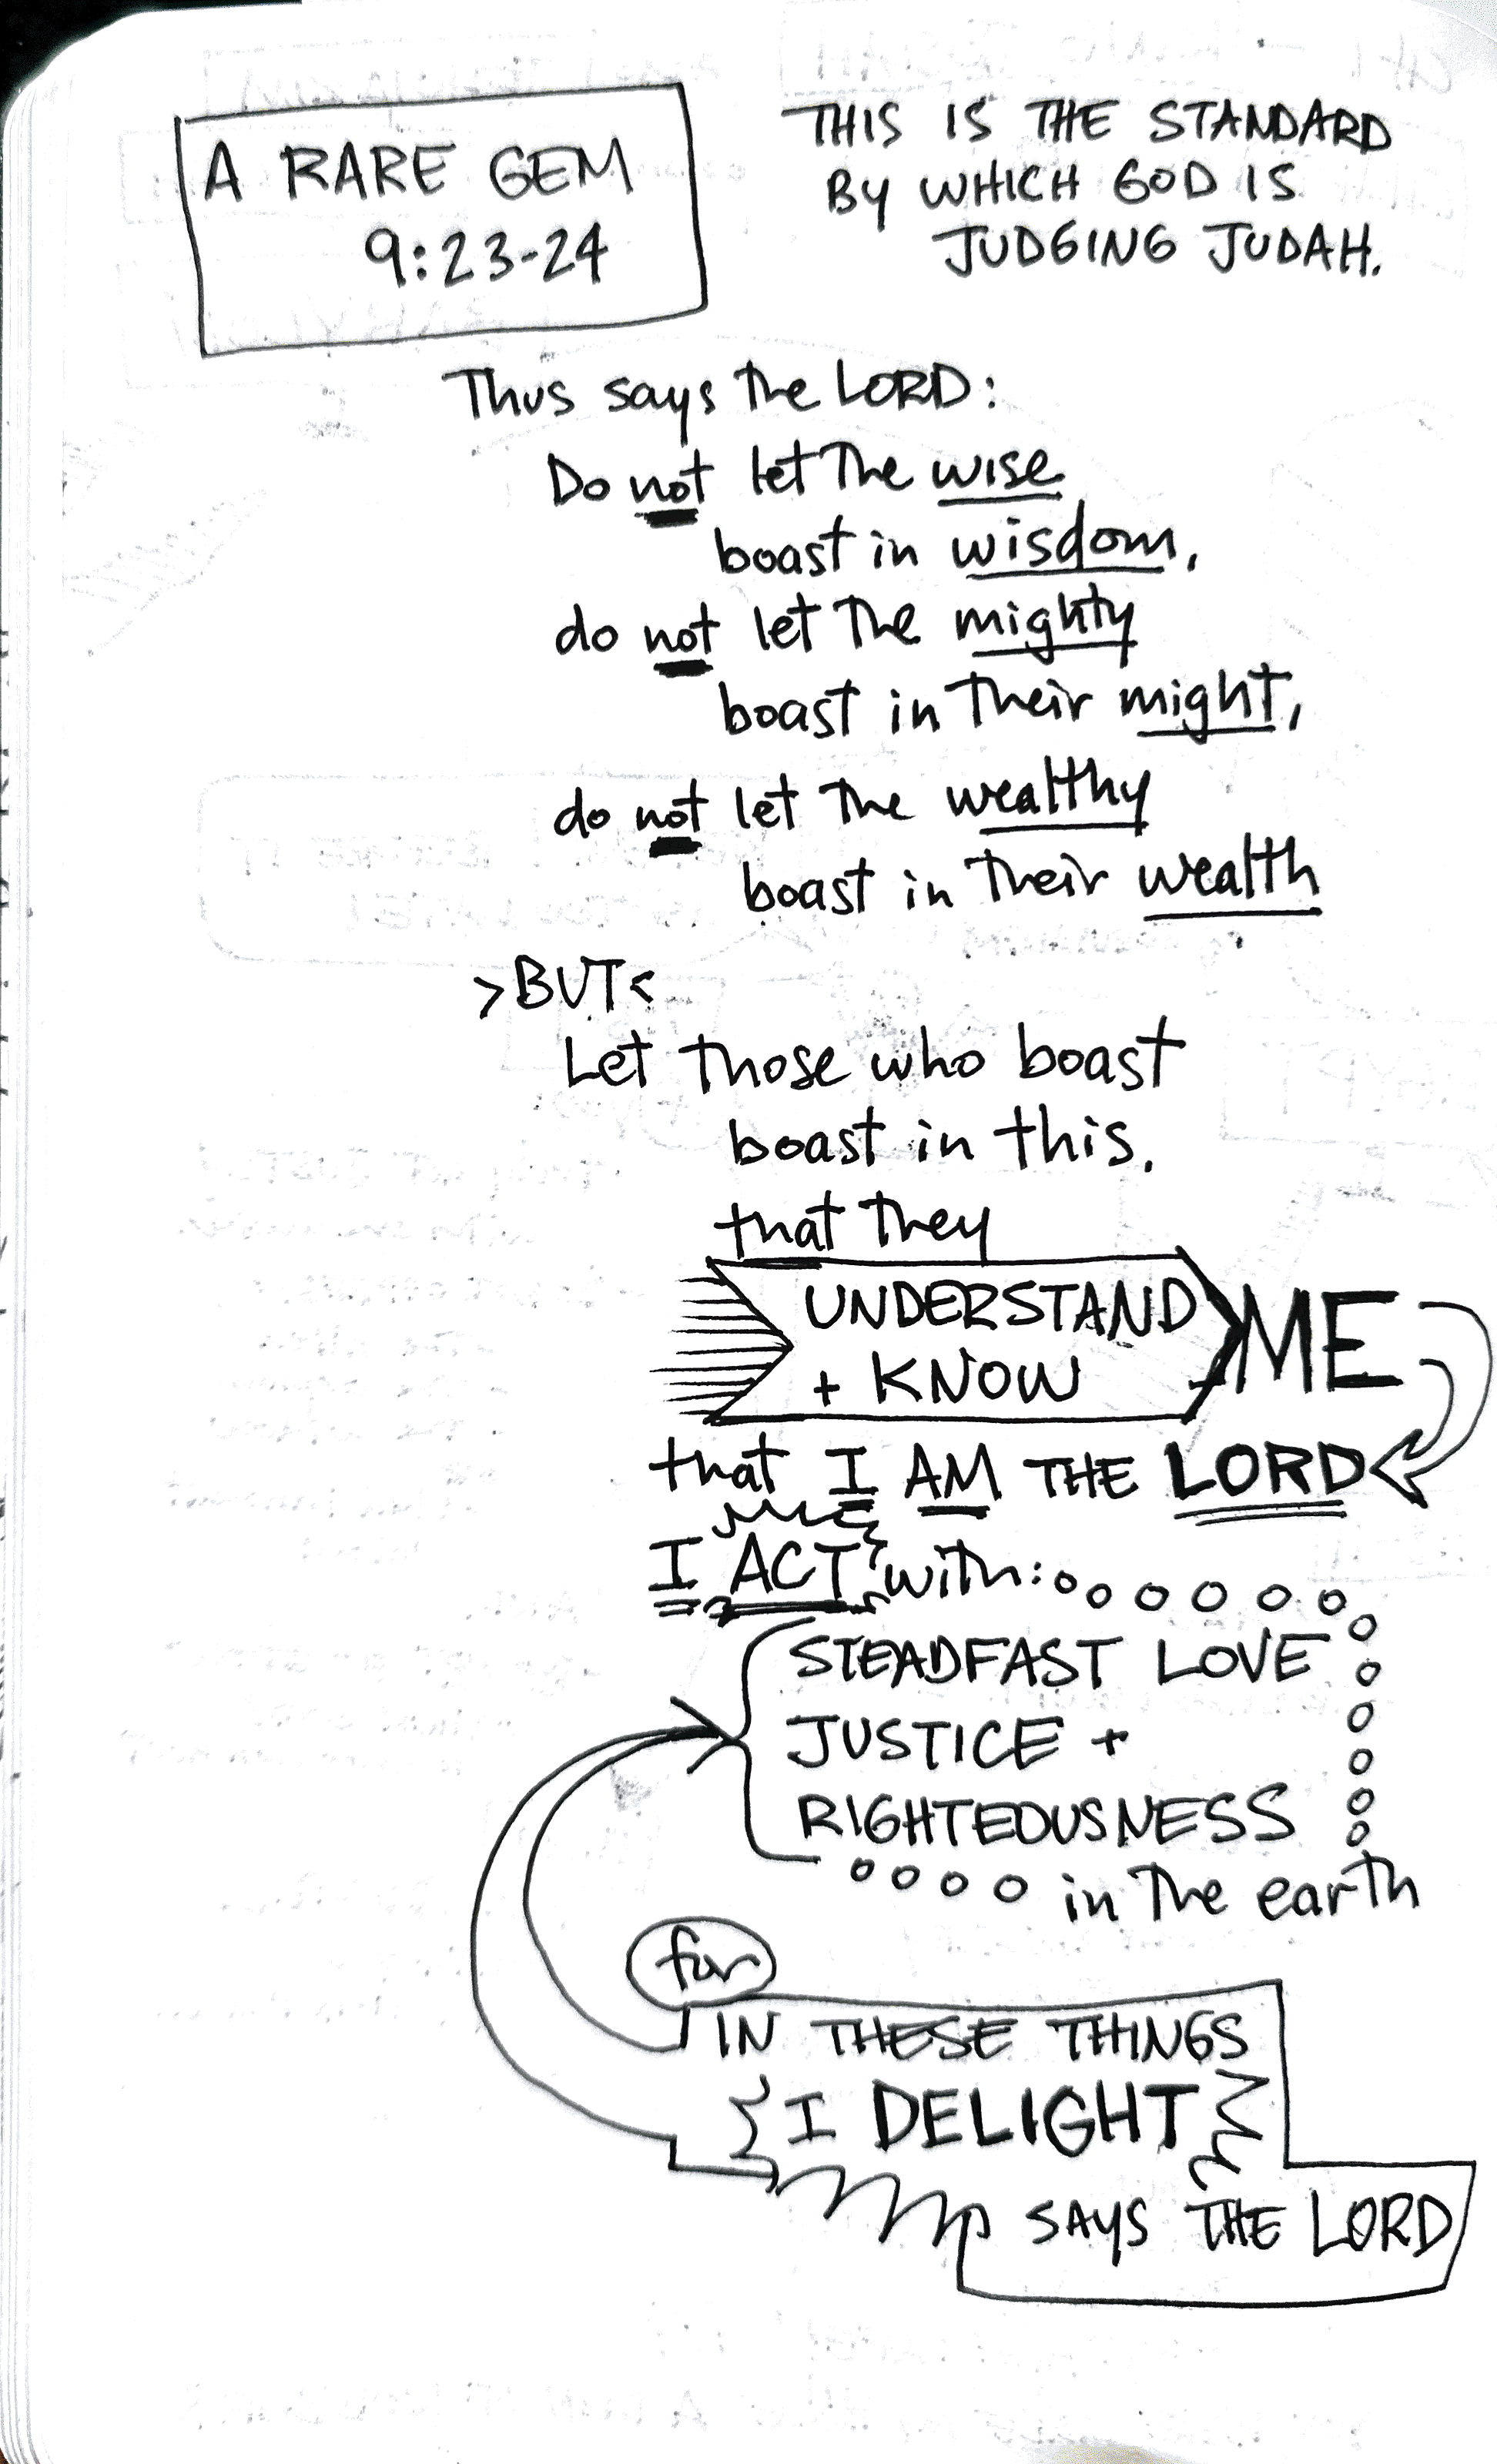 A RARE GEM
9:23-24
THIS IS THE STANDARD
BY WHICH GOD IS
JUDGING JUDAH.
Thus says the LORD:
Do not let the wise
boast in wisdom,
do not let the mighty
boast in their might,
do not let the wealthy
boast in their wealth
>BUT<
Let those who boast
boast in this,
that they
UNDERSTAND
+ KNOW
ME
that I AM THE LORD
I ACT with:
STEADFAST LOVE
JUSTICE +
RIGHTEOUSNESS
in the earth
for
IN THESE THINGS
I DELIGHT
SAYS THE LORD